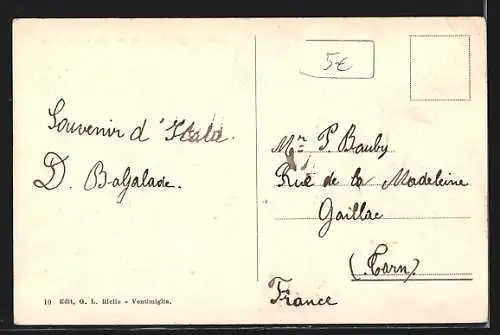 5€
Souvenir d'Italie.
D.
Mr P. Bauby
Rue de la Madeleine
Gaillac
(Tarn)
France
10 Edit. G. L. - Ventimiglia.